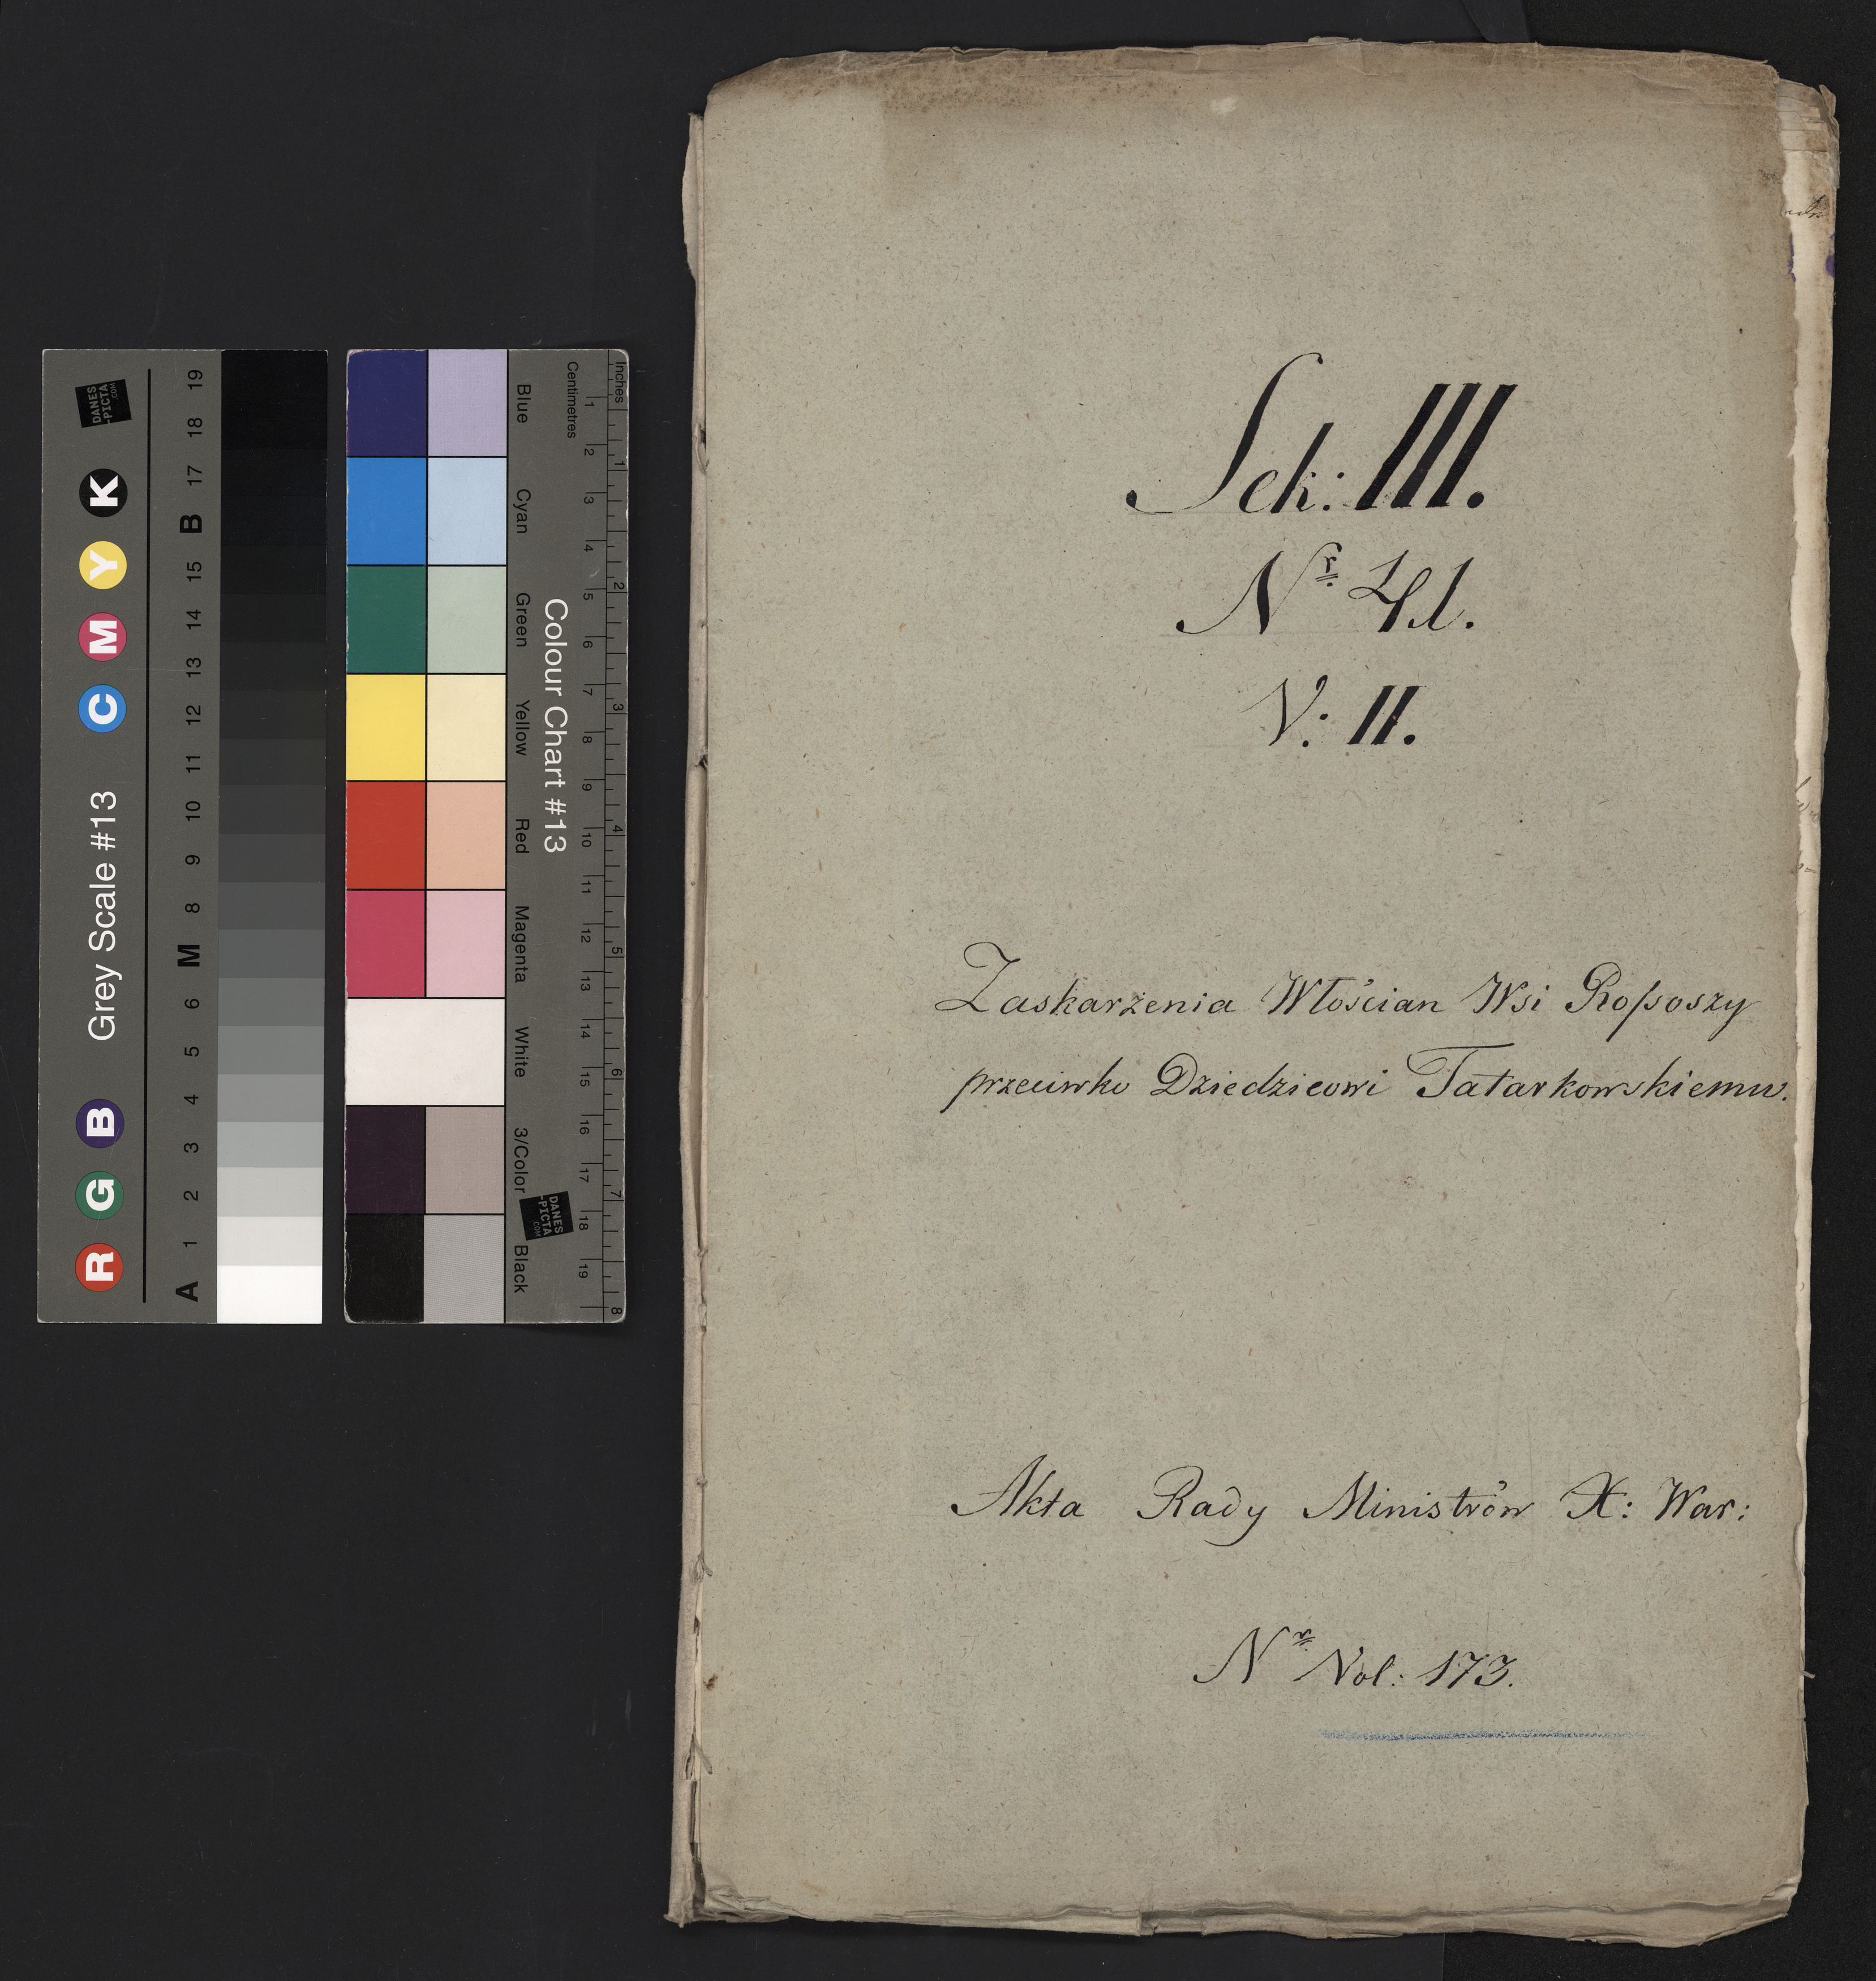 Sek: III.
Nr 41.
V: II.
Zaskarżenia Włościan Wsi Rossoszy
przeciwko Dziedzicowi Tatarkowskiemu.
Akta Rady Ministrów X: War:
Nr Vol: 173.
Grey Scale #13
R G B C M Y K
A 1 2 3 4 5 6 M 8 9 10 11 12 13 14 15 B 17 18 19
DANES
-PICTA
.COM
Colour Chart #13
Blue Cyan Green Yellow Red Magenta White 3/Color Black
Centimetres 1 2 3 4 5 6 7 8 9 10 11 12 13 14 15 16 17 18 19
Inches 1 2 3 4 5 6 7 8
DANES
-PICTA
.COM